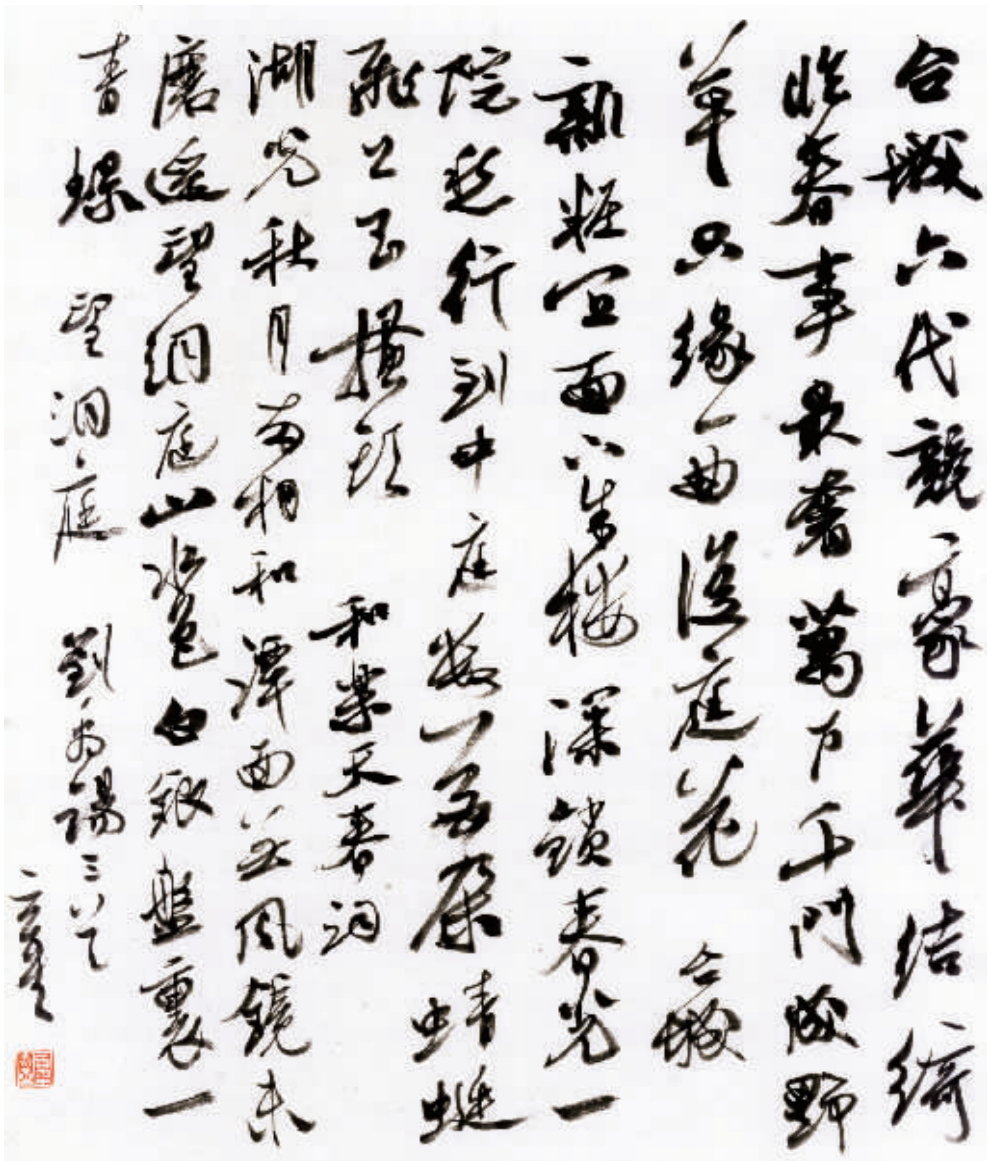 台城六代競豪華結綺
臨春事最奢萬戶千門成野
草只緣一曲後庭花 台城
新妝宜面下朱樓深鎖春光一
院愁行到中庭數花朵蜻蜓
飛上玉搔頭 和樂天春詞
湖光秋月兩相和潭面無風鏡未
磨遙望洞庭山水色白銀盤裏一
青螺 望洞庭 劉禹錫三首